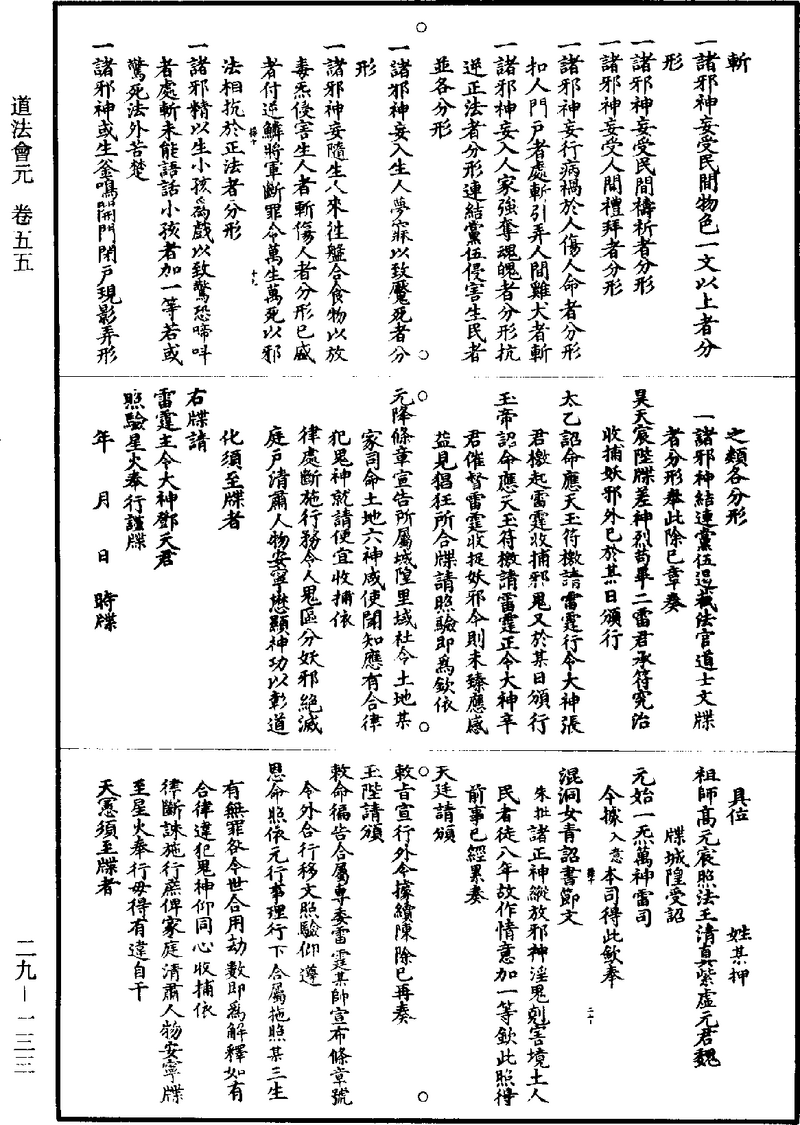 道法會元 卷五五
斬
一諸邪神妄受民間物色一文以上者分
形
一諸邪神妄受民間禱祈者分形
一諸邪神妄受人間禮拜者分形
一諸邪神妄行病禍於人傷人命者分形
扣人門戶者處斬引弄人間雞犬者斬
一諸邪神妄入人家強奪魂魄者分形抗
逆正法者分形連結黨伍侵害生民者
並各分形
一諸邪神妄入生人夢寐以致魘死者分
形
一諸邪神妄隨生人來往盤合食物以放
毒炁侵害生人者斬傷人者分形已盛
者付逆鱗將軍斷罪令萬生萬死以邪
法相抗於正法者分形
一諸邪精以生小孩為戲以致驚恐啼呌
者處斬未能語話小孩者加一等若或
驚死法外苦楚
一諸邪神或生釜鳴開門閉戶現影弄形
之類各分形
一諸邪神結連黨伍邀截法官道士文牒
者分形奉此除已章奏
昊天宸陛牒差神烈苟畢二雷君承符究治
收捕妖邪外已於某日頒行
太乙詔命應天玉符檄請雷霆行令大神張
君檄起雷霆收捕邪鬼又於某日頒行
玉帝詔命應天玉符檄請雷霆正令大神辛
君催督雷霆收捉妖邪今則未臻應感
益見猖狂所合牒請照驗即為欽依
元降條章宣告所屬城隍里域社令土地某
家司命土地六神咸使聞知應有合律
犯鬼神就請便宜收捕依
律處斷施行務令人鬼區分妖邪絕滅
庭戶清肅人物安寧懋顯神功以彰道
化須至牒者
右牒請
雷霆主令大神鄧天君
照驗星火奉行謹牒
年 月 日 時牒
具位 姓某押
牒城隍受詔
祖師高元宸照法王清真紫虛元君魏
元始一炁萬神雷司
今據入意本司得此欽奉
混洞女青詔書節文
朱批諸正神縱放邪神淫鬼剋害境土人
民者徒八年故作情意加一等欽此照得
前事已經累奏
天廷請頒
敕旨宣行外今據續陳除已再奏
玉陛請頒
敕命徧告合屬專委雷霆某師宣布條章號
令外合行移文照驗仰遵
恩命照依元行事理行下合屬拖照某三生
有無罪咎今世合用劫數即為解釋如有
合律違犯鬼神仰同心收捕依
律斷誅施行庶俾家庭清肅人物安寧牒
至星火奉行毋得有違自干
天憲須至牒者
二九－一三三